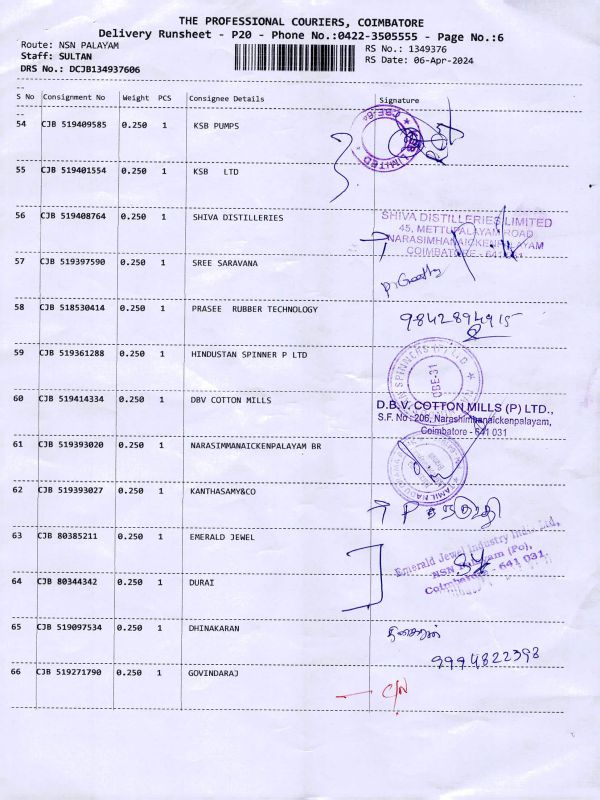 THE PROFESSIONAL COURIERS, COIMBATORE
Delivery Runsheet - P20 - Phone No.:0422-3505555 - Page No.:6
Route: NSN PALAYAM
RS No.: 1349376
Staff: SULTAN
RS Date: 06-Apr-2024
DRS No.: DCJB134937606
S No Consignment No Weight PCS Consignee Details Signature
54 CJB 519409585 0.250 1 KSB PUMPS
KSB LIMITED
55 CJB 519401554 0.250 1 KSB LTD
56 CJB 519408764 0.250 1 SHIVA DISTILLERIES
SHIVA DISTILLERIES LIMITED
45, METTUPALAYAM ROAD
NARASIMHANAICKENPALAYAM
COIMBATORE - 641 031
57 CJB 519397590 0.250 1 SREE SARAVANA
58 CJB 518530414 0.250 1 PRASEE RUBBER TECHNOLOGY
9842894915
59 CJB 519361288 0.250 1 HINDUSTAN SPINNER P LTD
SPINNERS (P) LTD
CBE-31
60 CJB 519414334 0.250 1 DBV COTTON MILLS
D.B.V. COTTON MILLS (P) LTD.,
S.F. No : 206, Narashimhanaickenpalayam,
Coimbatore - 641 031
61 CJB 519393020 0.250 1 NARASIMMANAICKENPALAYAM BR
TAMIL NADU
62 CJB 519393027 0.250 1 KANTHASAMY&CO
63 CJB 80385211 0.250 1 EMERALD JEWEL
Emerald Jewel Industry India Ltd,
NSN Palayam (Po),
Coimbatore - 641 031.
64 CJB 80344342 0.250 1 DURAI
65 CJB 519097534 0.250 1 DHINAKARAN
9994822398
66 CJB 519271790 0.250 1 GOVINDARAJ
C/N